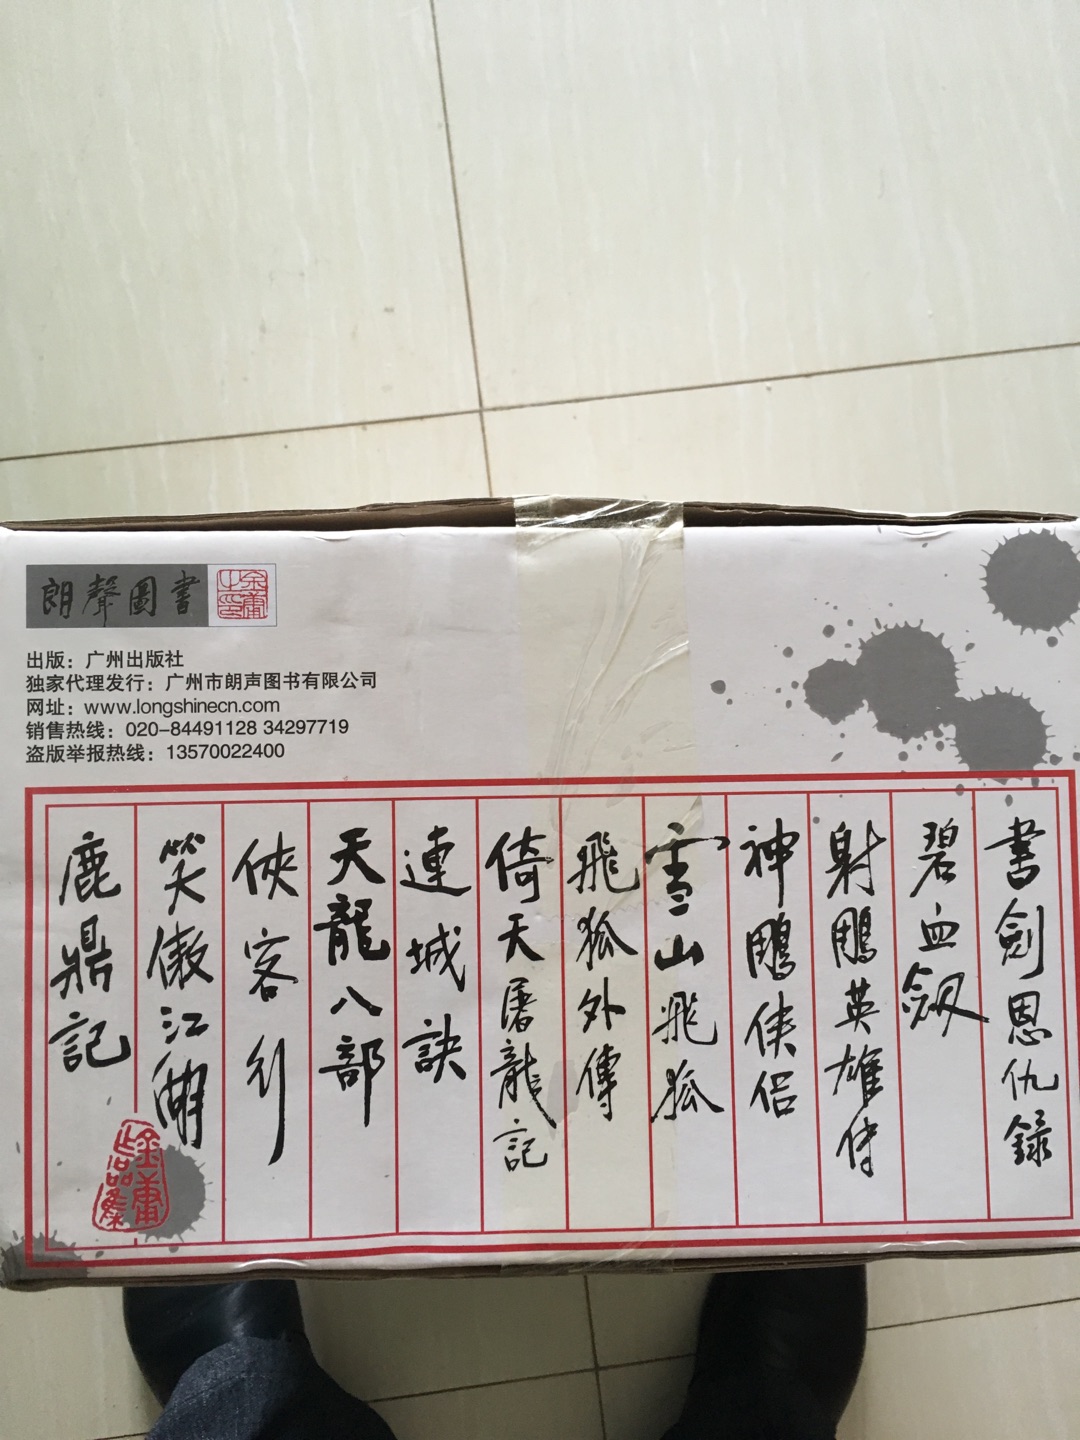 朗聲圖書
金庸之印
出版：广州出版社
独家代理发行：广州市朗声图书有限公司
网址：www.longshinecn.com
销售热线：020-84491128 34297719
盗版举报热线：13570022400
書劍恩仇錄
碧血劍
射鵰英雄傳
神鵰俠侶
雪山飛狐
飛狐外傳
倚天屠龍記
連城訣
天龍八部
俠客行
笑傲江湖
鹿鼎記
金庸作品集